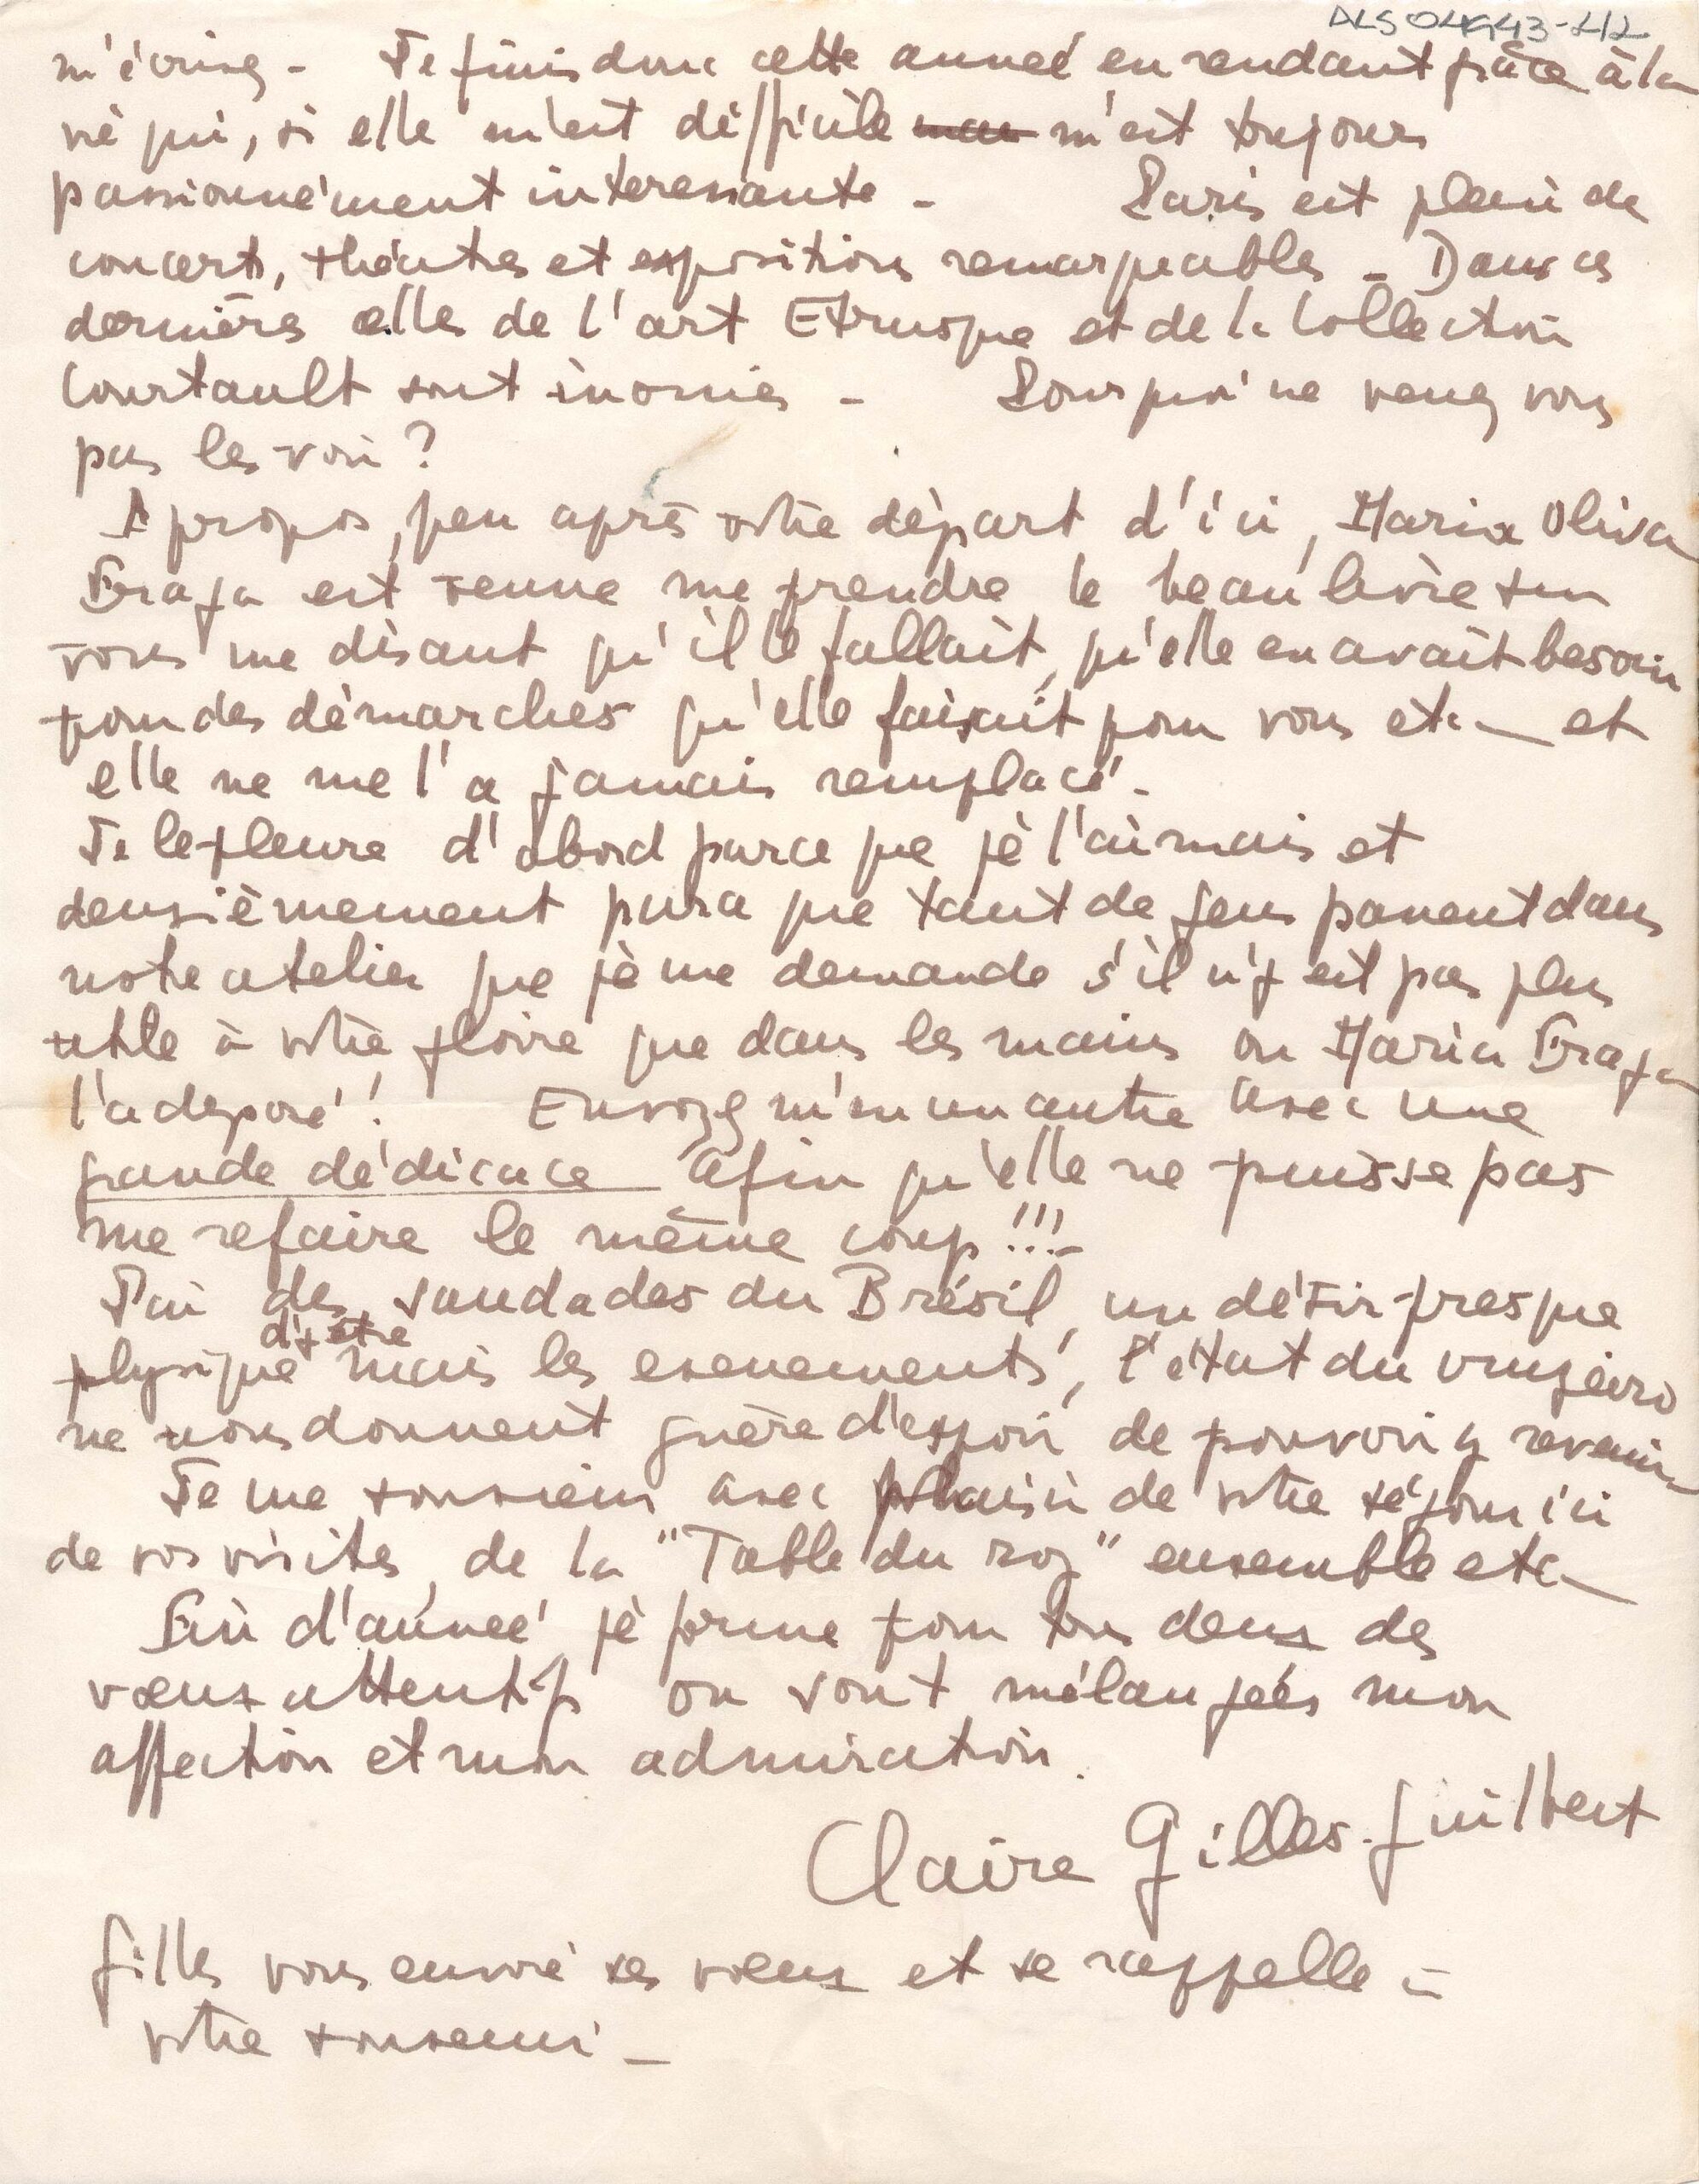 ALS04G43-2/2
m'écriviez - Je finis donc cette année en rendant grâce à la
vie qui, si elle m'est difficile m'est toujours
passionnément interessante -      Paris est plein de
concerts, théatres et expositions remarquables - Dans ces
dernières celles de l'art Etrusque et de la Collection
Courtault sont inouies -      Pourquoi ne venez vous
pas les voir ?
A propos, peu après votre départ d'ici, Maria Oliva
Fraga est venue me prendre le beau livre sur
vous me disant qu'il le fallait, qu'elle en avait besoin
pour des démarches qu'elle faisait pour vous etc - et
elle ne me l'a jamais remplacé -
Je le pleure d'abord parce que je l'aimais et
deuxièmement parce que tant de gens passent dans
notre atelier que je me demande s'il n'y est pas plus
utile à votre gloire que dans les mains ou Maria Fraga
l'a déposé !      Envoyez m'en un autre avec une
grande dédicace afin qu'elle ne puisse pas
me refaire le même coup !!! -
J'ai des saudades du Brésil, un désir presque
physique d'y être mais les evenements, l'état du cruzeiro
ne nous donnent guère d'espoir de pouvoir y revenir -
Je me souviens avec plaisir de votre séjour ici
de vos visites, de la "Table du roy" ensemble etc -
Fin d'année je forme pour tous deux des
voeux attentifs ou sont mélangées mon
affection et mon admiration.
Claire Gilles-Guilbert
Gilles vous envoie ses voeux et se rappelle à
votre souvenir -